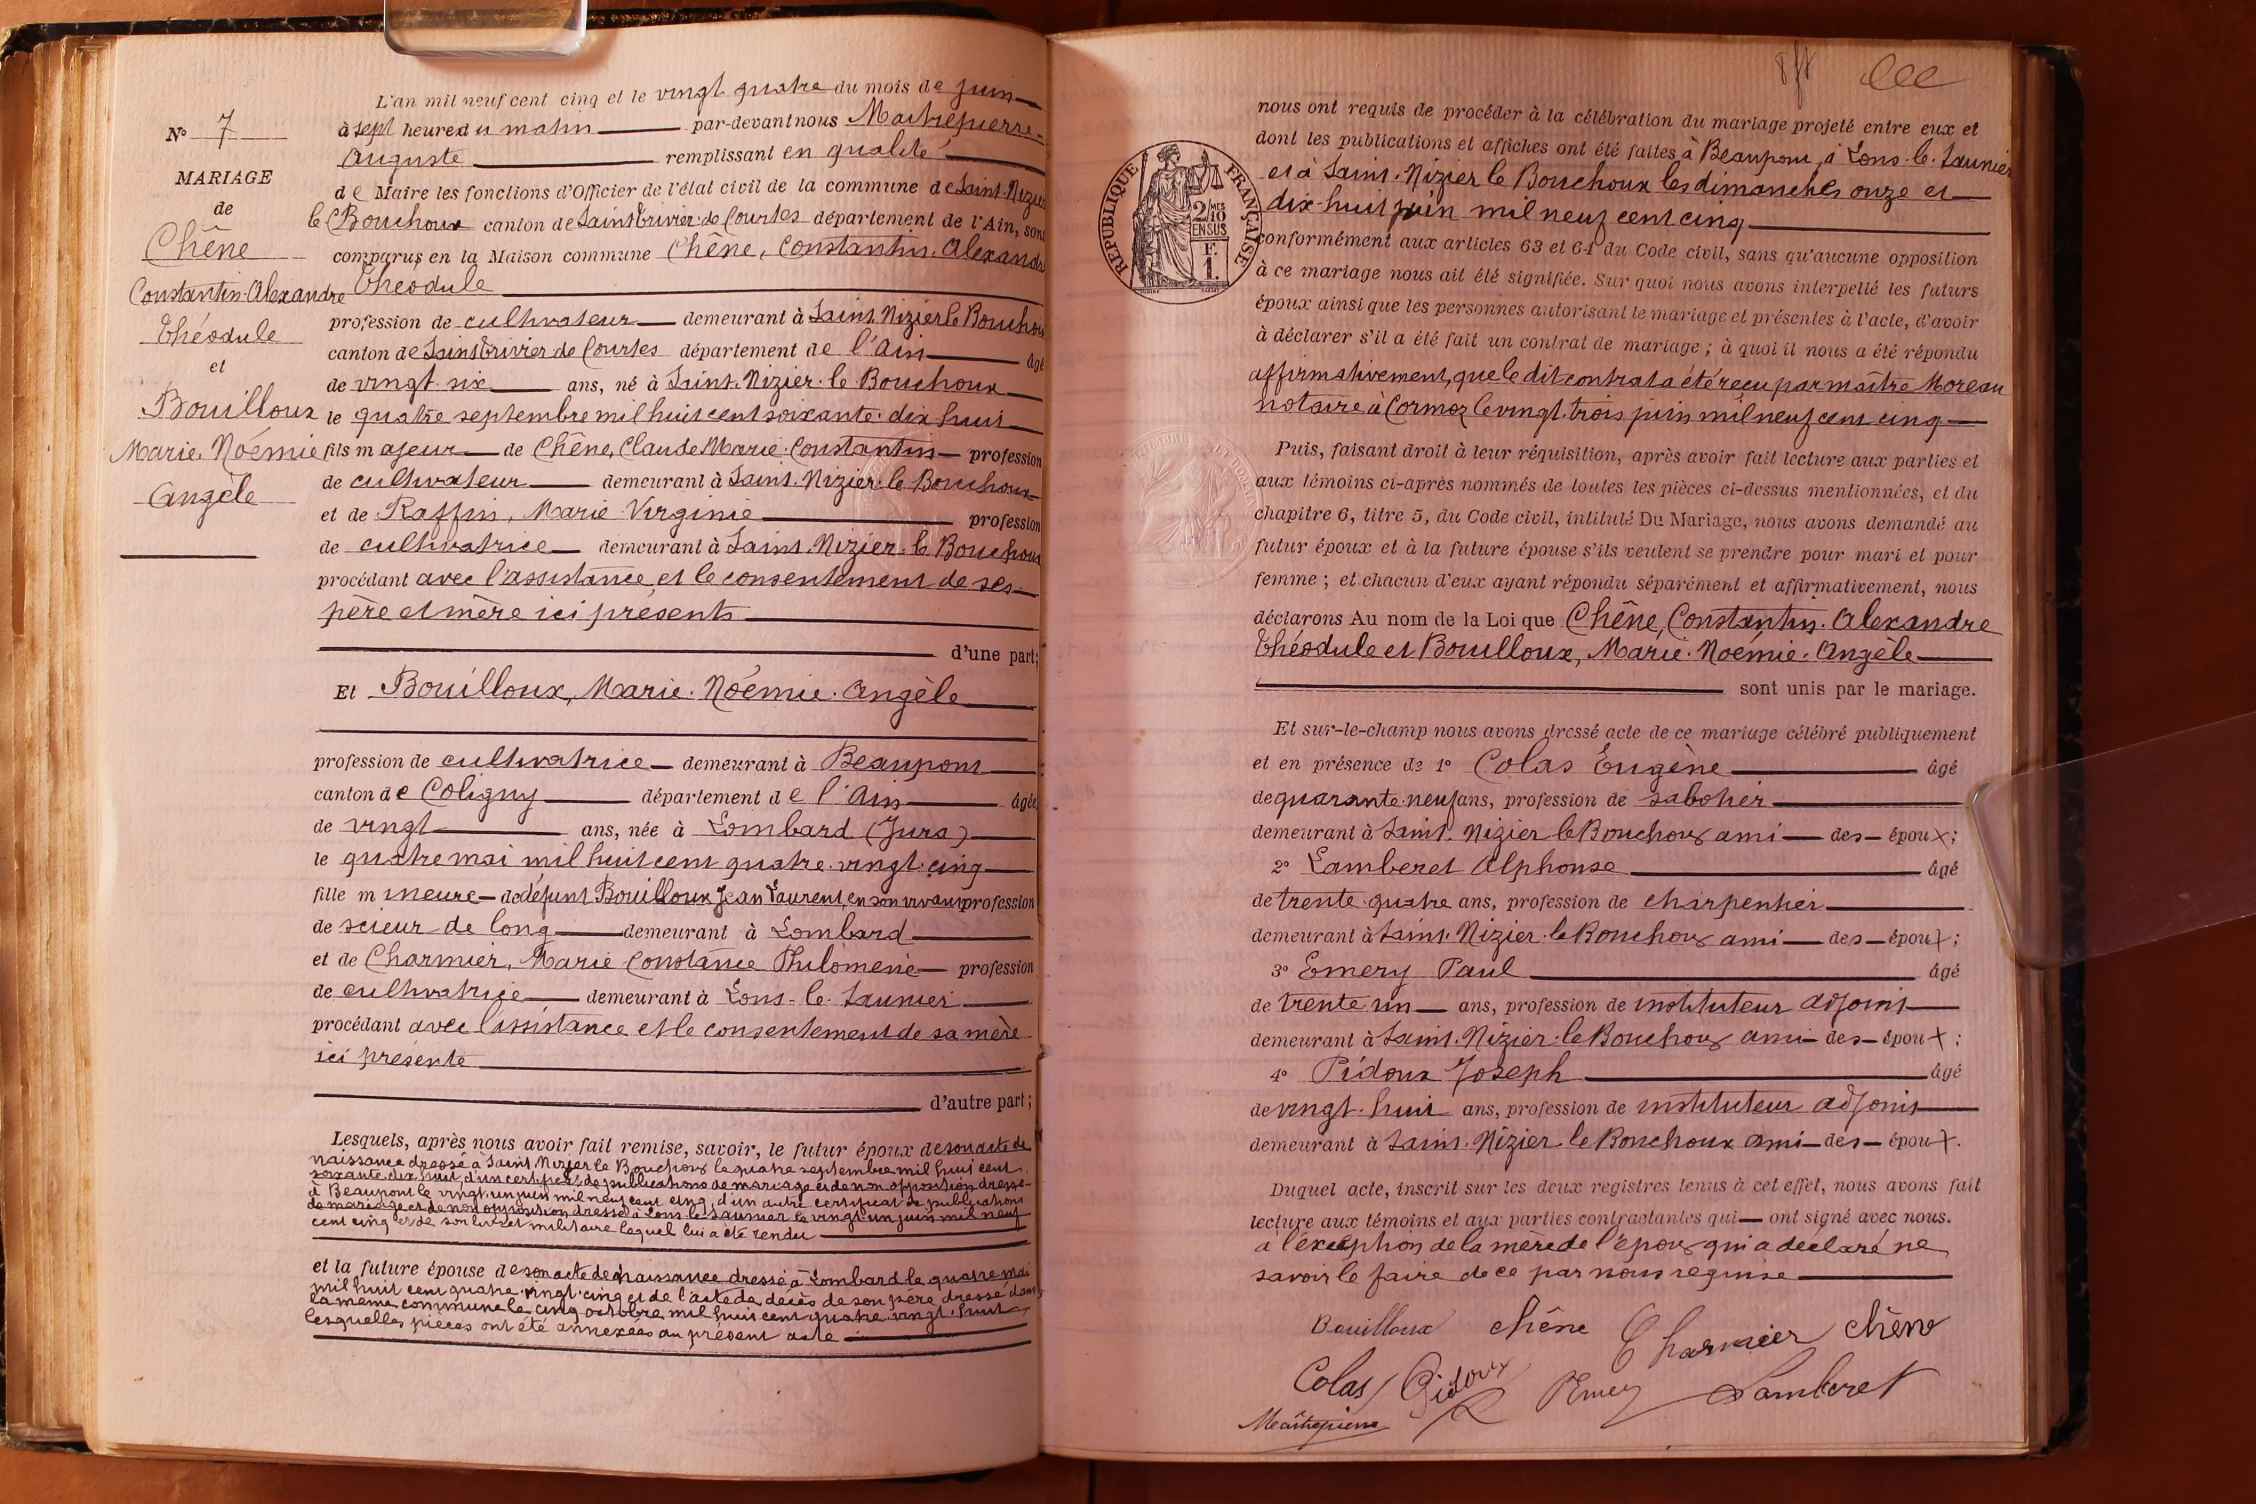 L'an mil neuf cent cinq et le vingt quatre du mois de juin
N° 7
à sept heures du matin par-devant nous Maitrepierre
Auguste remplissant en qualité
MARIAGE
de Maire les fonctions d'Officier de l'état civil de la commune de Saint-Nizier
de
le Bouchoux canton de Saint Trivier-de Courtes département de l'Ain, sont
Chêne
comparus en la Maison commune Chêne, Constantin-Alexandre
Constantin-Alexandre
Théodule
profession de cultivateur demeurant à Saint Nizier le Bouchoux
Théodule
canton de Saint Trivier de Courtes département de l'Ain âgé
et
de vingt-six ans, né à Saint-Nizier-le-Bouchoux
Bouilloux
le quatre septembre mil huit cent soixante-dix huit
Marie-Noémie
fils majeur de Chêne, Claude Marie-Constantin profession
de cultivateur demeurant à Saint-Nizier-le Bouchoux
Angèle
et de Raffin, Marie Virginie profession
de cultivatrice demeurant à Saint-Nizier-le Bouchoux
procédant avec l'assistance et le consentement de ses
père et mère ici présents
d'une part;
Et Bouilloux, Marie-Noémie-Angèle
profession de cultivatrice demeurant à Beaupont
canton de Coligny département de l'Ain âgée
de vingt ans, née à Lombard (Jura)
le quatre mai mil huit cent quatre-vingt-cinq
fille mineure de défunt Bouilloux Jean Laurent, en son vivant profession
de scieur de long demeurant à Lombard
et de Charmier, Marie Constance Philomène profession
de cultivatrice demeurant à Lons-le-Saunier
procédant avec l'assistance et le consentement de sa mère
ici présente
d'autre part;
Lesquels, après nous avoir fait remise, savoir, le futur époux de son acte de
naissance dressé à Saint Nizier le Bouchoux le quatre septembre mil huit cent
soixante dix huit, d'un certificat de publications de mariage et de non opposition dressé
à Beaupont le vingt-un juin mil neuf cent cinq, d'un autre certificat de publications
de mariage et de non opposition dressé à Lons-le-Saunier le vingt-un juin mil neuf
cent cinq et de son livret militaire lequel lui a été rendu
et la future épouse de son acte de naissance dressé à Lombard le quatre mai
mil huit cent quatre-vingt-cinq et de l'acte de décès de son père dressé dans
la même commune le cinq octobre mil huit cent quatre vingt-huit
lesquelles pièces ont été annexées au présent acte
nous ont requis de procéder à la célébration du mariage projeté entre eux et
dont les publications et affiches ont été faites à Beaupont, à Lons-le-Saunier
et à Saint-Nizier le Bouchoux les dimanches onze et
dix-huit juin mil neuf cent cinq
RÉPUBLIQUE FRANÇAISE
2/10 MES
EN SUS
F.
1.
conformément aux articles 63 et 64 du Code civil, sans qu'aucune opposition
à ce mariage nous ait été signifiée. Sur quoi nous avons interpellé les futurs
époux ainsi que les personnes autorisant le mariage et présentes à l'acte, d'avoir
à déclarer s'il a été fait un contrat de mariage; à quoi il nous a été répondu
affirmativement, que le dit contrat a été reçu par maître Moreau
notaire à Cormoz le vingt-trois juin mil neuf cent cinq
Puis, faisant droit à leur réquisition, après avoir fait lecture aux parties et
aux témoins ci-après nommés de toutes les pièces ci-dessus mentionnées, et du
chapitre 6, titre 5, du Code civil, intitulé Du Mariage, nous avons demandé au
futur époux et à la future épouse s'ils veulent se prendre pour mari et pour
femme; et chacun d'eux ayant répondu séparément et affirmativement, nous
déclarons Au nom de la Loi que Chêne, Constantin-Alexandre
Théodule et Bouilloux, Marie-Noémie-Angèle
sont unis par le mariage.
Et sur-le-champ nous avons dressé acte de ce mariage célébré publiquement
et en présence de 1° Colas Eugène âgé
de quarante-neuf ans, profession de sabotier
demeurant à Saint-Nizier le Bouchoux ami des époux;
2° Lamberet Alphonse âgé
de trente-quatre ans, profession de charpentier
demeurant à Saint-Nizier-le Bouchoux ami des époux;
3° Emery Paul âgé
de trente un ans, profession de instituteur adjoint
demeurant à Saint-Nizier-le Bouchoux ami des époux;
4° Pidoux Joseph âgé
de vingt-huit ans, profession de instituteur adjoint
demeurant à Saint-Nizier-le Bouchoux ami des époux.
Duquel acte, inscrit sur les deux registres tenus à cet effet, nous avons fait
lecture aux témoins et aux parties contractantes qui ont signé avec nous.
à l'exception de la mère de l'époux qui a déclaré ne
savoir le faire de ce par nous requise
Bouilloux Chêne Charmier Chêne
Colas Pidoux PEmery Lamberet
Maitrepierre